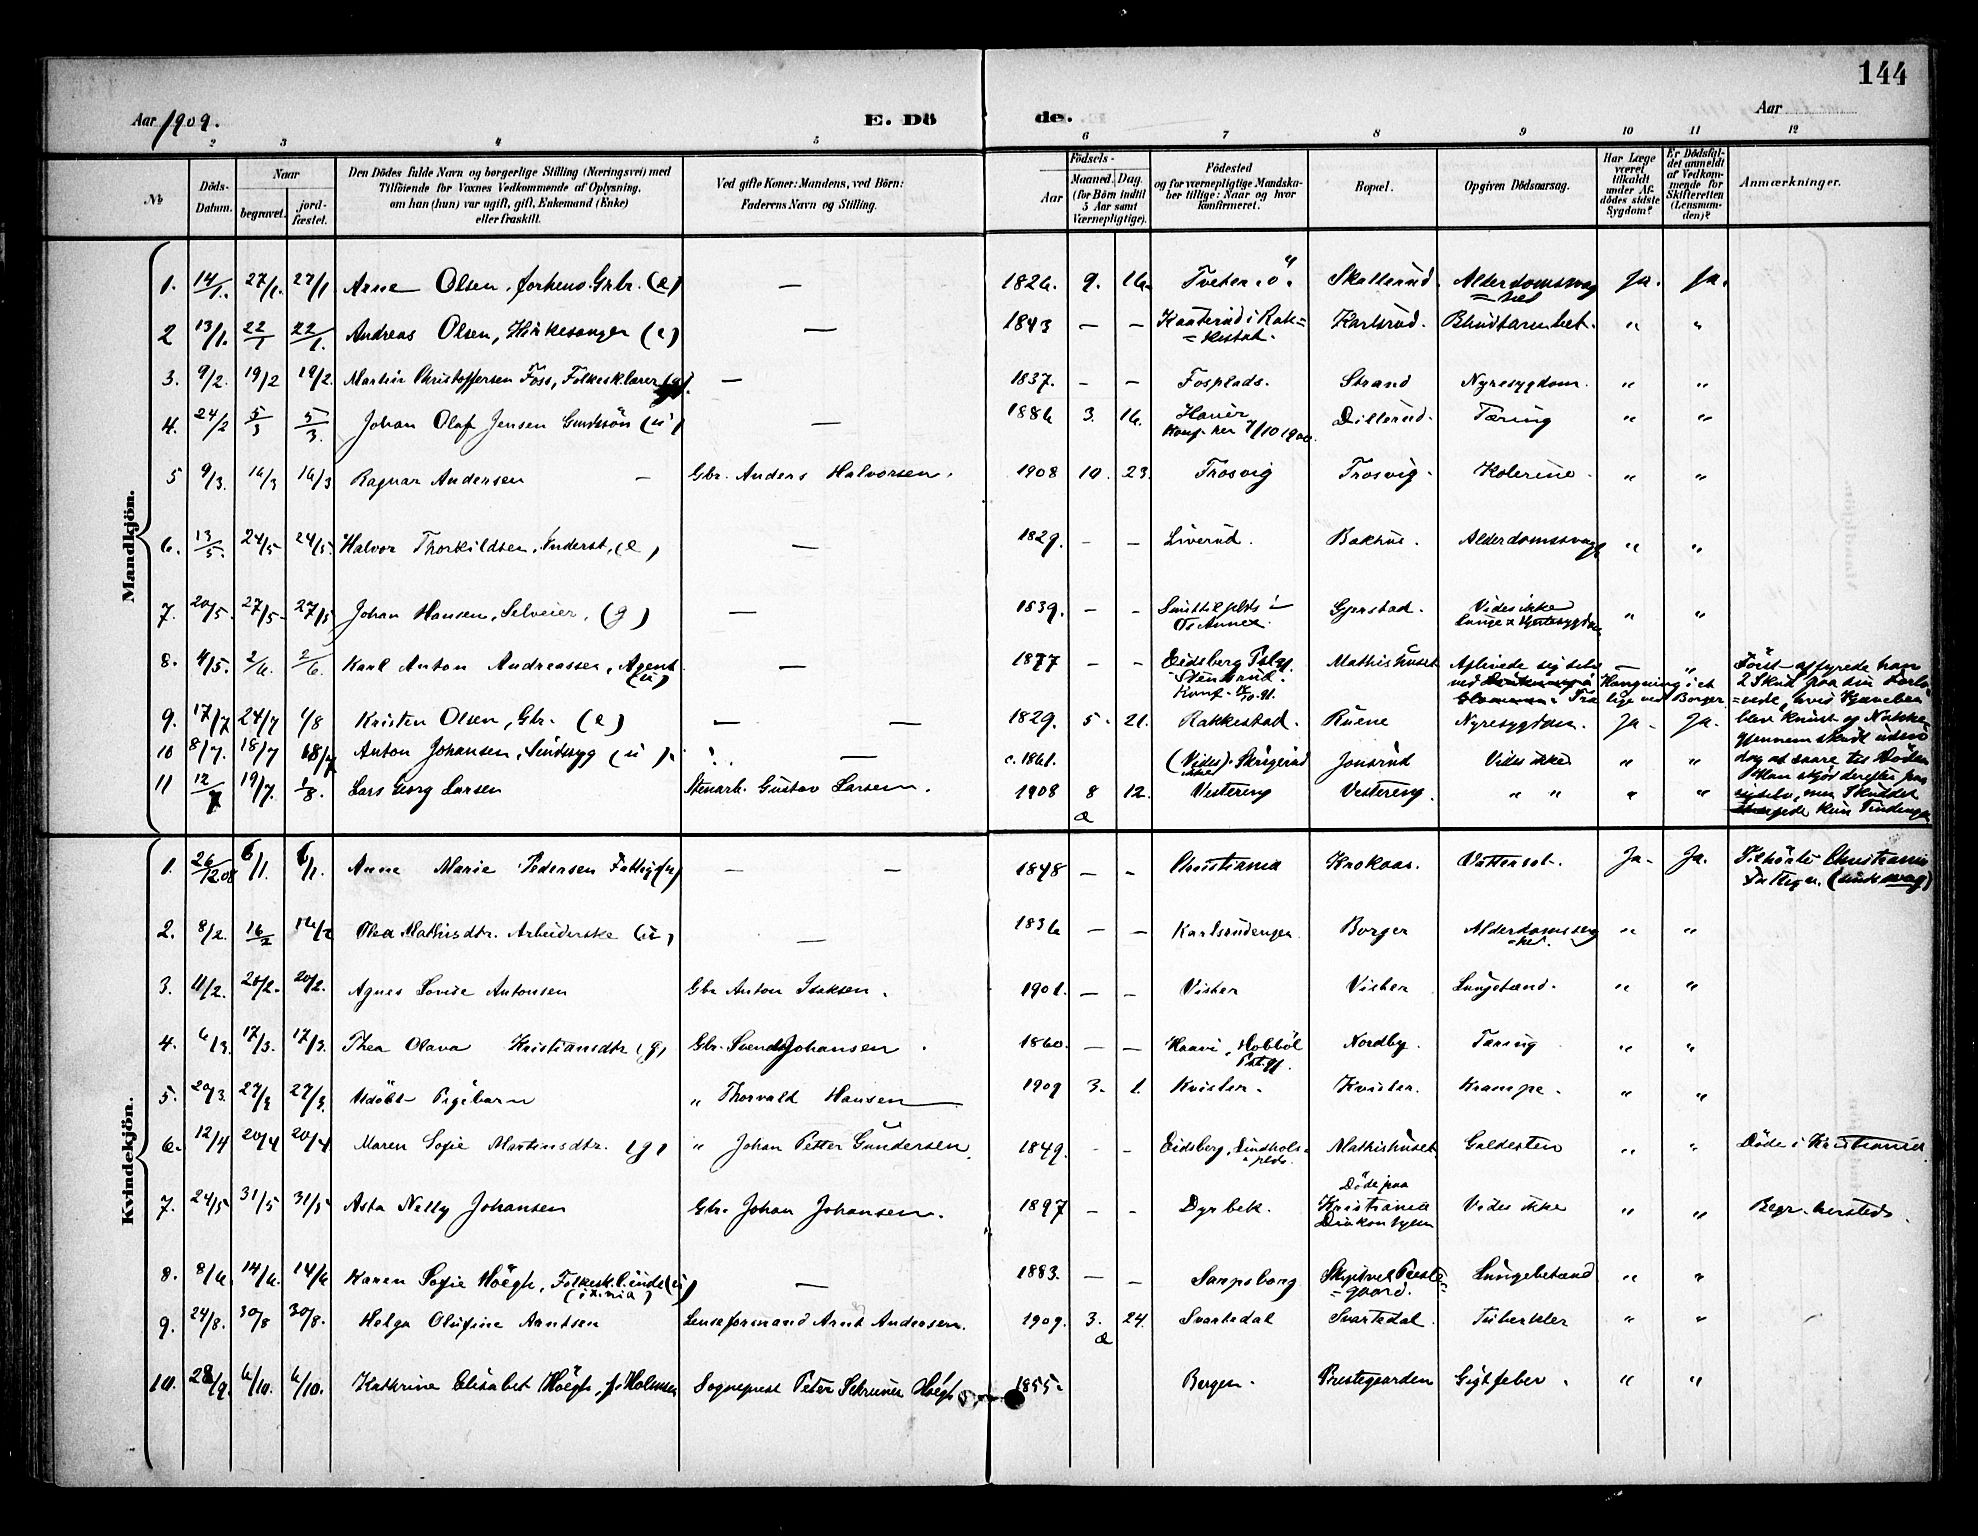 144
Aar 1909.
E. Dö de.
Aar
2 3 4 5 6 7 8 9 10 11 12
No
Döds-Datum.
Naar
begravet.
jord-fæstet.
Den Dödes fulde Navn og borgerlige Stilling (Næringsvei) med
Tilföiende for Voxnes Vedkommende af Oplysning,
om han (hun) var ugift, gift, Enkemand (Enke)
eller fraskilt.
Ved gifte Koner: Mandens, ved Börn:
Faderens Navn og Stilling.
Födsels-
Aar
Maaned. Dag.
(for Börn indtil
5 Aar samt
Værnepligtige).
Födested
og for værnepligtige Mandska-
ber tillige: Naar og hvor
konfirmeret.
Bopæl.
Opgiven Dödsaarsag.
Har Læge
været
tilkaldt
under Af-
dödes sidste
Sygdom?
Er Dödsfal-
det anmeldt
af Vedkom-
mende for
Skifteretten
(Lensman-
den)?
Anmærkninger.
Mandkjön.
1. 14/1. 27/1. 27/1 Arne Olsen, forhenv. Grbr. (e) — 1826. 9. 16. Tveten Skallerud. Alderdomssvag=hed Ja. Ja.
2 13/1. 22/1 22/1. Andreas Olsen, Kirkesanger (e) — 1843 — — Kaaterud i Rak=
=kestad. Karlsrud. Blindtarmbet. " "
3. 9/2. 19/2 19/2. Martin Christoffersen Foss, Folkesk.lærer (g). — 1837. - — Fosplads. Strand Nyresygdom. " "
4. 24/2 5/3 5/3. Johan Olaf Jensen (u) — 1886 3. 16. Haver
Konf. her 7/10 1900. Dillerud. Tæring " "
5 9/3. 16/3 16/3 Ragnar Andersen — Gbr. Anders Halvorsen. 1908 10. 23. Trosvig Trosvig. Kolerine. " "
6. 13/5. 24/5 24/5. Halvor Thorkildsen, Inderst, (e) — 1829. - — Liverud. Bakhus. Alderdomssvagh " "
7. 20/5. 27/5- 27/5 Johan Hansen, Selveier, (g) — 1839. — - Gjerstad. Vides ikke
Lunge & Hjertesygdom " "
8. 4/5. 2/6. 2/6. Karl Anton Andreassen, Agent (u) — 1877 — - Eidsberg Pstgj.
Konf. Mathishuset Aflivede sig selv
ved Hængning i et
Træ lige ved Borger — " Först affyrede han
2 Skud paa sin Forlo=
=vede, hvis Kjæveben
blev knust og Nakke
gjennemskudt uden
dog at saare til Döden
Han skjöd derefter paa
sig selv, men Skuddet
kun Tindingen
9. 17/7 24/7 1/8 Kristen Olsen, Gbr. (e) — — 1829. 5. 21. Rakkestad. Ruene Nyresygdom. Ja - Ja.
10 8/7. 18/7 18/7 Anton Johansen, Sindssyg (u). — c. 1861. (Vides ikke). Skrigerud Jonsrud Vides ikke " "
11 12/7 19/7. 1/8. Lars Georg Larsen Stenarb. Gustav Larsen. 1908 8 12. Vestereng Vestereng. " " " "
Kvindekjön.
1. 26/12 08 6/1. 6/1. Anne Marie Pedersen Fattig (u) — — 1848 — - Christiania Krokaas. Vattersot. Ja - Ja. Tilhörte Christiania
Fattigv. (sindssvag)
2. 8/2. 16/2 16/2 Thea Mathisdtr. Arbeiderske (u) — 1836 — — Karlsrudenga. Borger Alderdomssvag
=hed. " "
3. 11/2. 20/2. 20/2. Agnes Lovise Antonsen Gbr Anton Isaksen. 1901. — — Vister Vister Lungebetænd. " "
4. 6/3. 17/3. 17/3. Thea Olava Kristiansdtr (g) Gbr. Svend Johansen. 1860. — — Haavi, Hobböl
Pstgj. Nordby. Tæring " "
5. 20/3. 27/3 27/3. Udöbt Pigebarn " Thorvald Hansen — 1909 3. 1. Kvister. Kvister. Krampe. " "
6. 12/4 20/4 20/4. Maren Sofie Martinsdtr. (g) " Johan Petter Gundersen. 1849. - — Eidsberg, Lindhols=
plds. Mathishuset Galdesten " " Döde i Kristiania
7. 24/5 31/5 31/5 Asta Nelly Johansen Gbr. Johan Johansen. 1897 — - Dyrbek. Döde paa
Kristiania
Diakonhjem Vides ikke " " Begr. hersteds.
8. 8/6. 14/6. 14/6 Karen Sofie Höegh, Folkesk.lærerinde (u) — 1883. — — Sarpsborg Skiptvet Præste=
=gaard. Lungebetænd " "
9. 24/8. 30/8 30/8. Helga Olufine Arntsen Lenseformand Arnt Andersen. 1909. 3. 24. Svartedal Svartedal. Tuberkler " "
10. 28/9. 6/10. 6/10. Kathrine Elisabet Höegh, f. Holmsen Sogneprest Peter Höegh 1855. Bergen. Prestegaarden Gigtfeber. " "